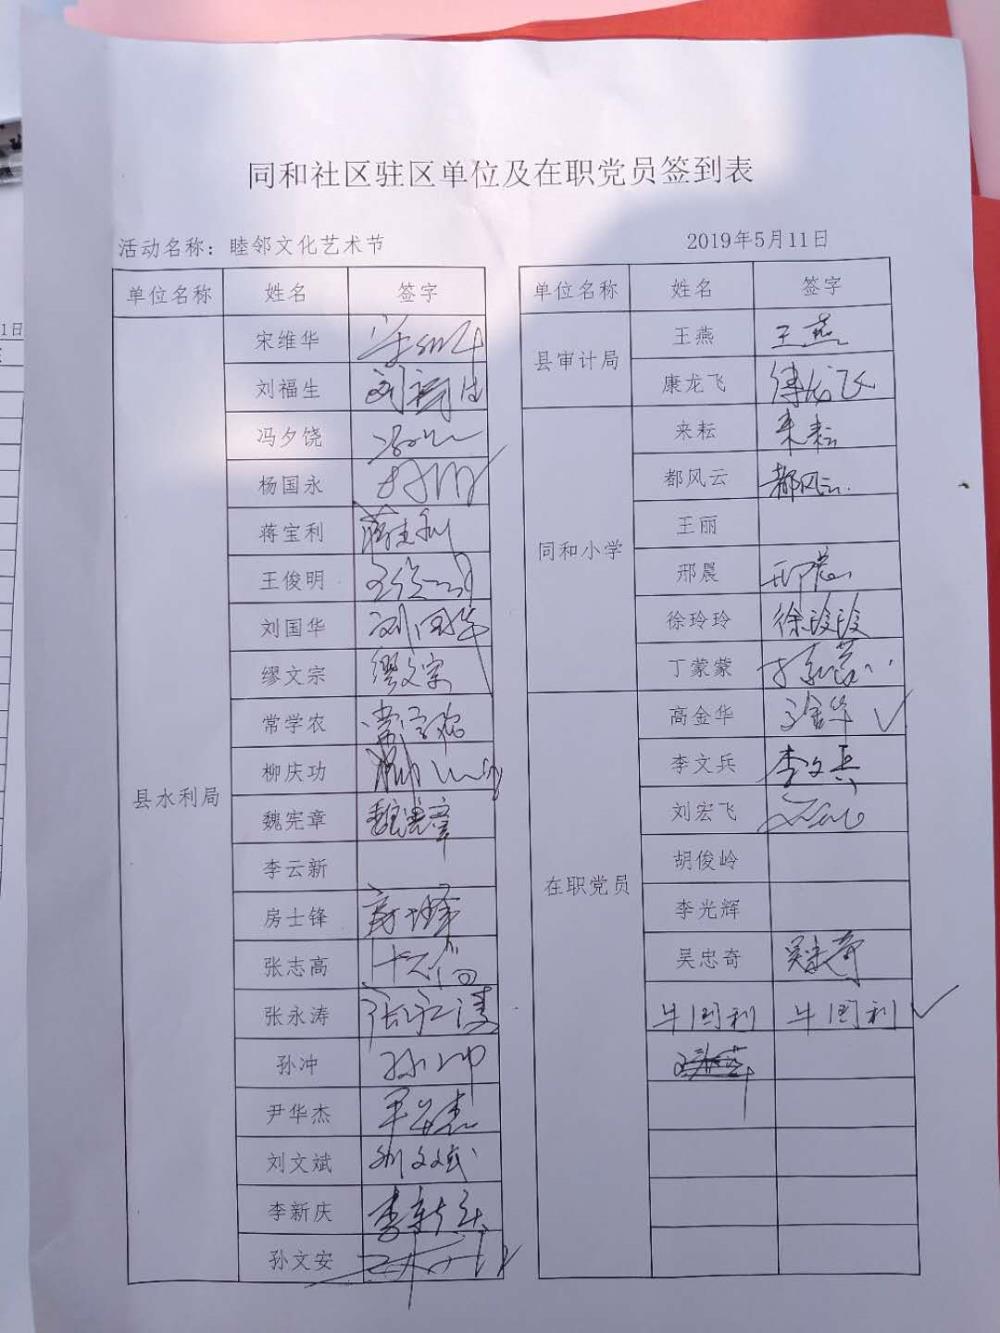 同和社区驻区单位及在职党员签到表
活动名称：睦邻文化艺术节
2019年5月11日
单位名称 姓名 签字
县水利局
宋维华
刘福生 刘福生
冯夕饶
杨国永
蒋宝利 蒋宝利
王俊明
刘国华 刘国华
缪文宗 缪文宗
常学农
柳庆功
魏宪章 魏宪章
李云新
房士锋 房士锋
张志高
张永涛 张永涛
孙冲 孙冲
尹华杰 尹华杰
刘文斌 刘文斌
李新庆 李新庆
孙文安
单位名称 姓名 签字
县审计局
王燕 王燕
康龙飞
同和小学
来耘 来耘
都风云 都风云
王丽
邢晨 邢晨
徐玲玲 徐玲玲
丁蒙蒙
在职党员
高金华 高金华
李文兵 李文兵
刘宏飞
胡俊岭
李光辉
吴忠奇 吴忠奇
牛国利 牛国利
1日